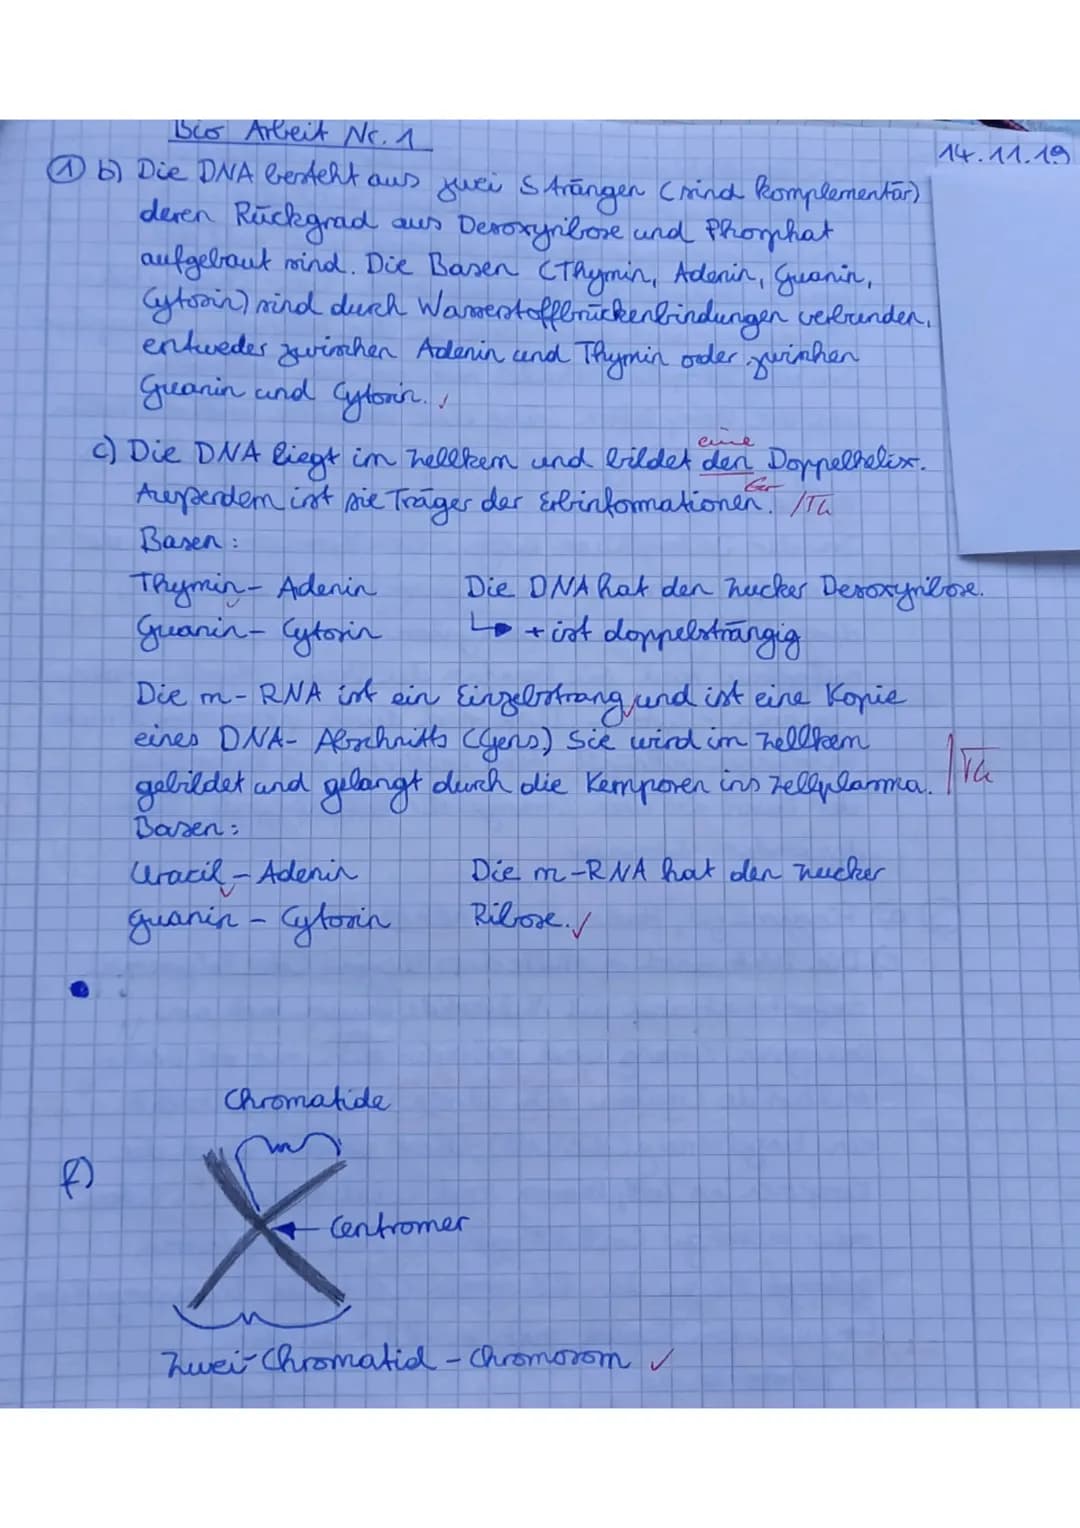 Bio Arbeit Nr. 1
14.11.19
① b) Die DNA besteht aus zwei Strängen (sind komplementär)
deren Rückgrad aus Desoxyribose und Phosphat
aufgebaut sind. Die Basen (Thymin, Adenin, Guanin,
Cytosin) sind durch Wasserstoffbrückenbindungen verbunden,
entweder zwischen Adenin und Thymin oder zwischen
Guanin und Cytosin. ✓
eine
c) Die DNA liegt im Zellkern und bildet den Doppelhelix.
Gr
Außerdem ist sie Träger der Erbinformationen. /Th
Basen:
Thymin - Adenin Die DNA hat den Zucker Desoxyribose.
Guanin - Cytosin ↳ + ist doppelsträngig
Die m-RNA ist ein Einzelstrang und ist eine Kopie
eines DNA-Abschnitts (Gens) Sie wird im Zellkern
gebildet und gelangt durch die Kernporen ins Zellplasma.
Basen:
Uracil - Adenin Die m-RNA hat den Zucker
Guanin - Cytosin Ribose. ✓
Chromatide
f)
Centromer
Zwei-Chromatid-Chromosom ✓